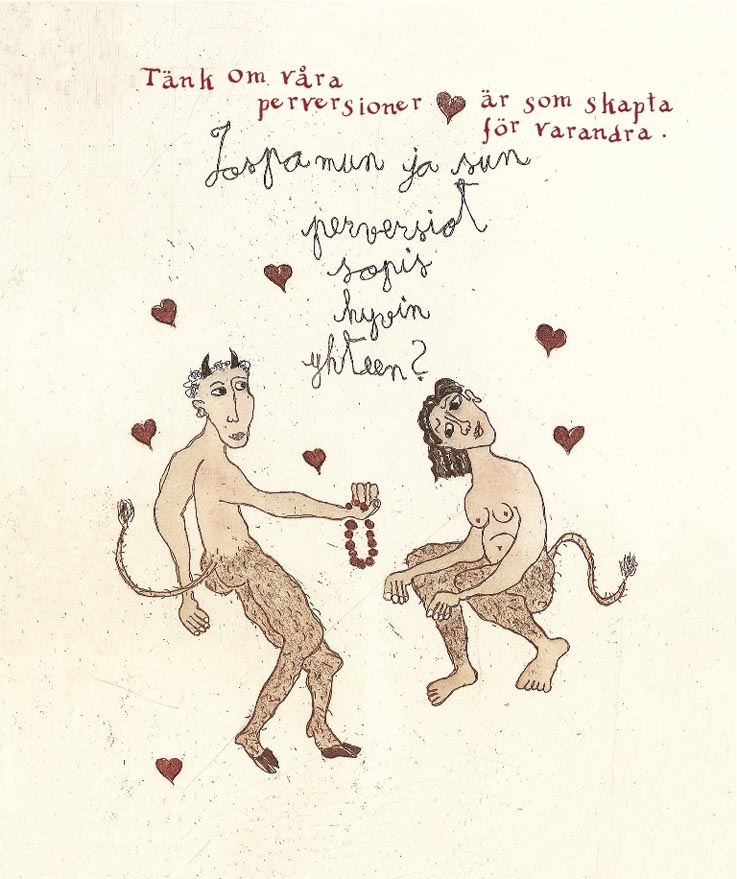 Tänk om våra
perversioner ♥ är som skapta
för varandra.
Jospa mun ja sun
perversiot
sopis
hyvin
yhteen?